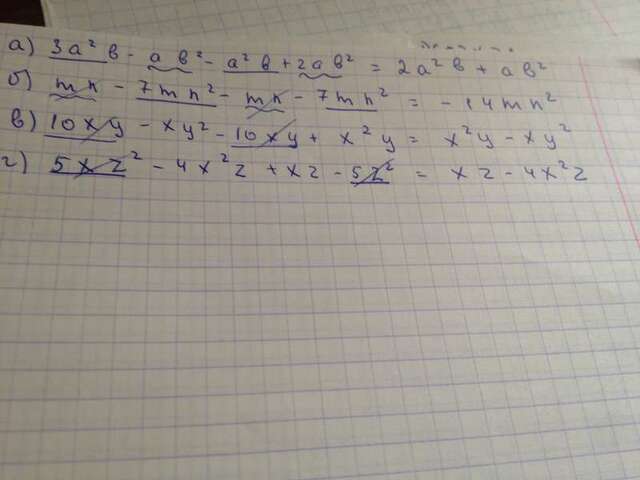 а) 3a²b - ab² - a²b + 2ab² = 2a²b + ab²
б) mn - 7mn² - mn - 7mn² = -14mn²
в) 10xy - xy² - 10xy + x²y = x²y - xy²
г) 5xz² - 4x²z + xz - 5z² = xz - 4x²z